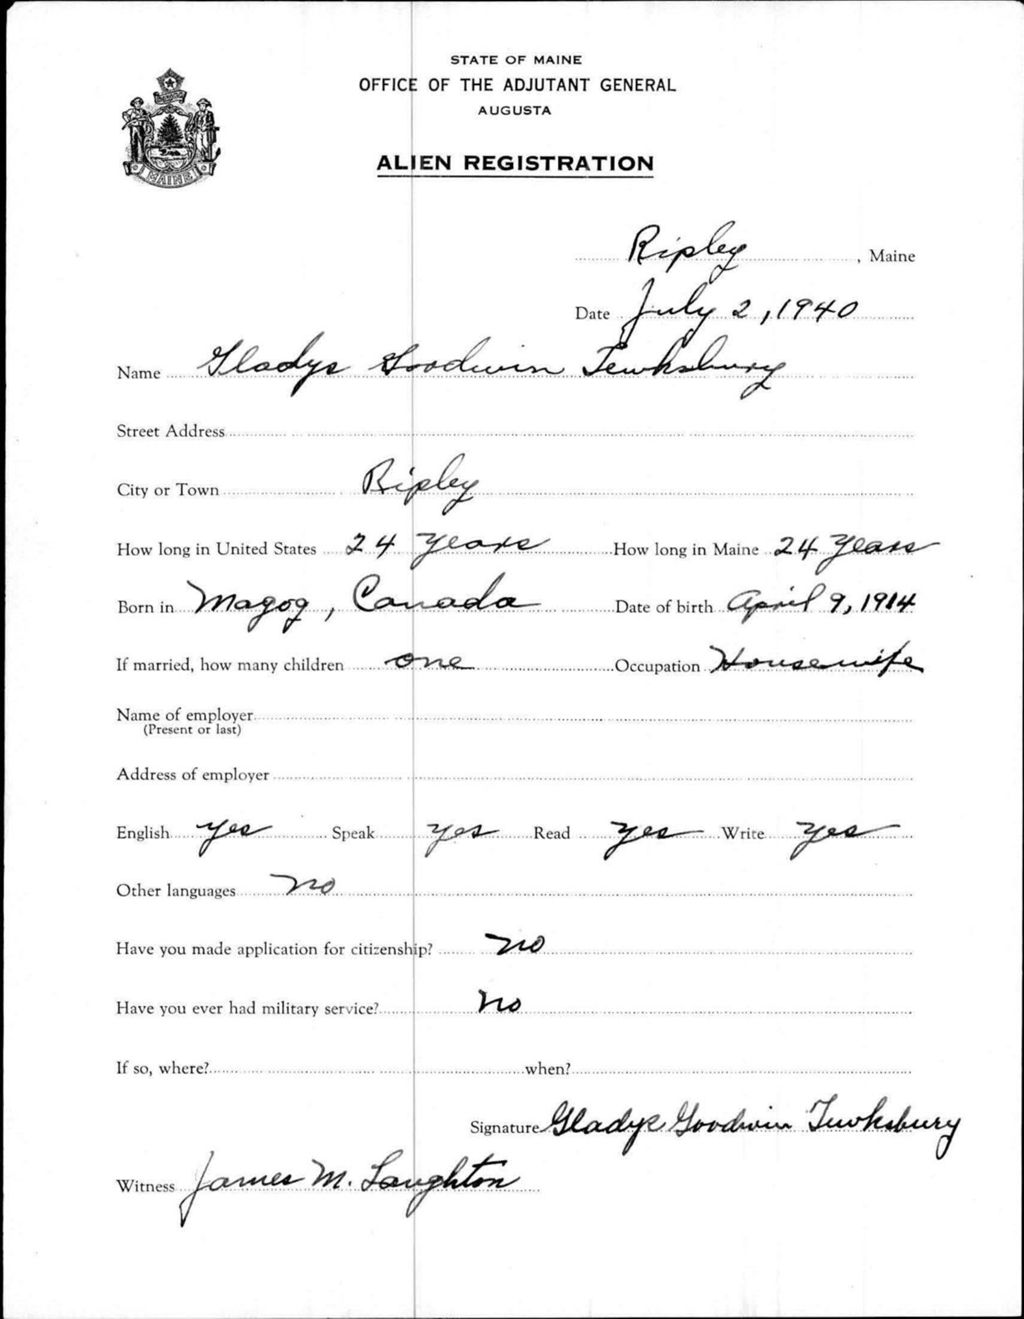 STATE OF MAINE
OFFICE OF THE ADJUTANT GENERAL
AUGUSTA
ALIEN REGISTRATION
MAINE
Ripley, Maine
Date July 2, 1940
Name Gladys Goodwin Tewksbury
Street Address
City or Town Ripley
How long in United States 24 years How long in Maine 24 years
Born in Magog, Canada Date of birth April 9, 1914
If married, how many children one Occupation Housewife
Name of employer
(Present or last)
Address of employer
English yes Speak yes Read yes Write yes
Other languages no
Have you made application for citizenship? no
Have you ever had military service? no
If so, where? when?
Signature Gladys Goodwin Tewksbury
Witness James M. Laughton